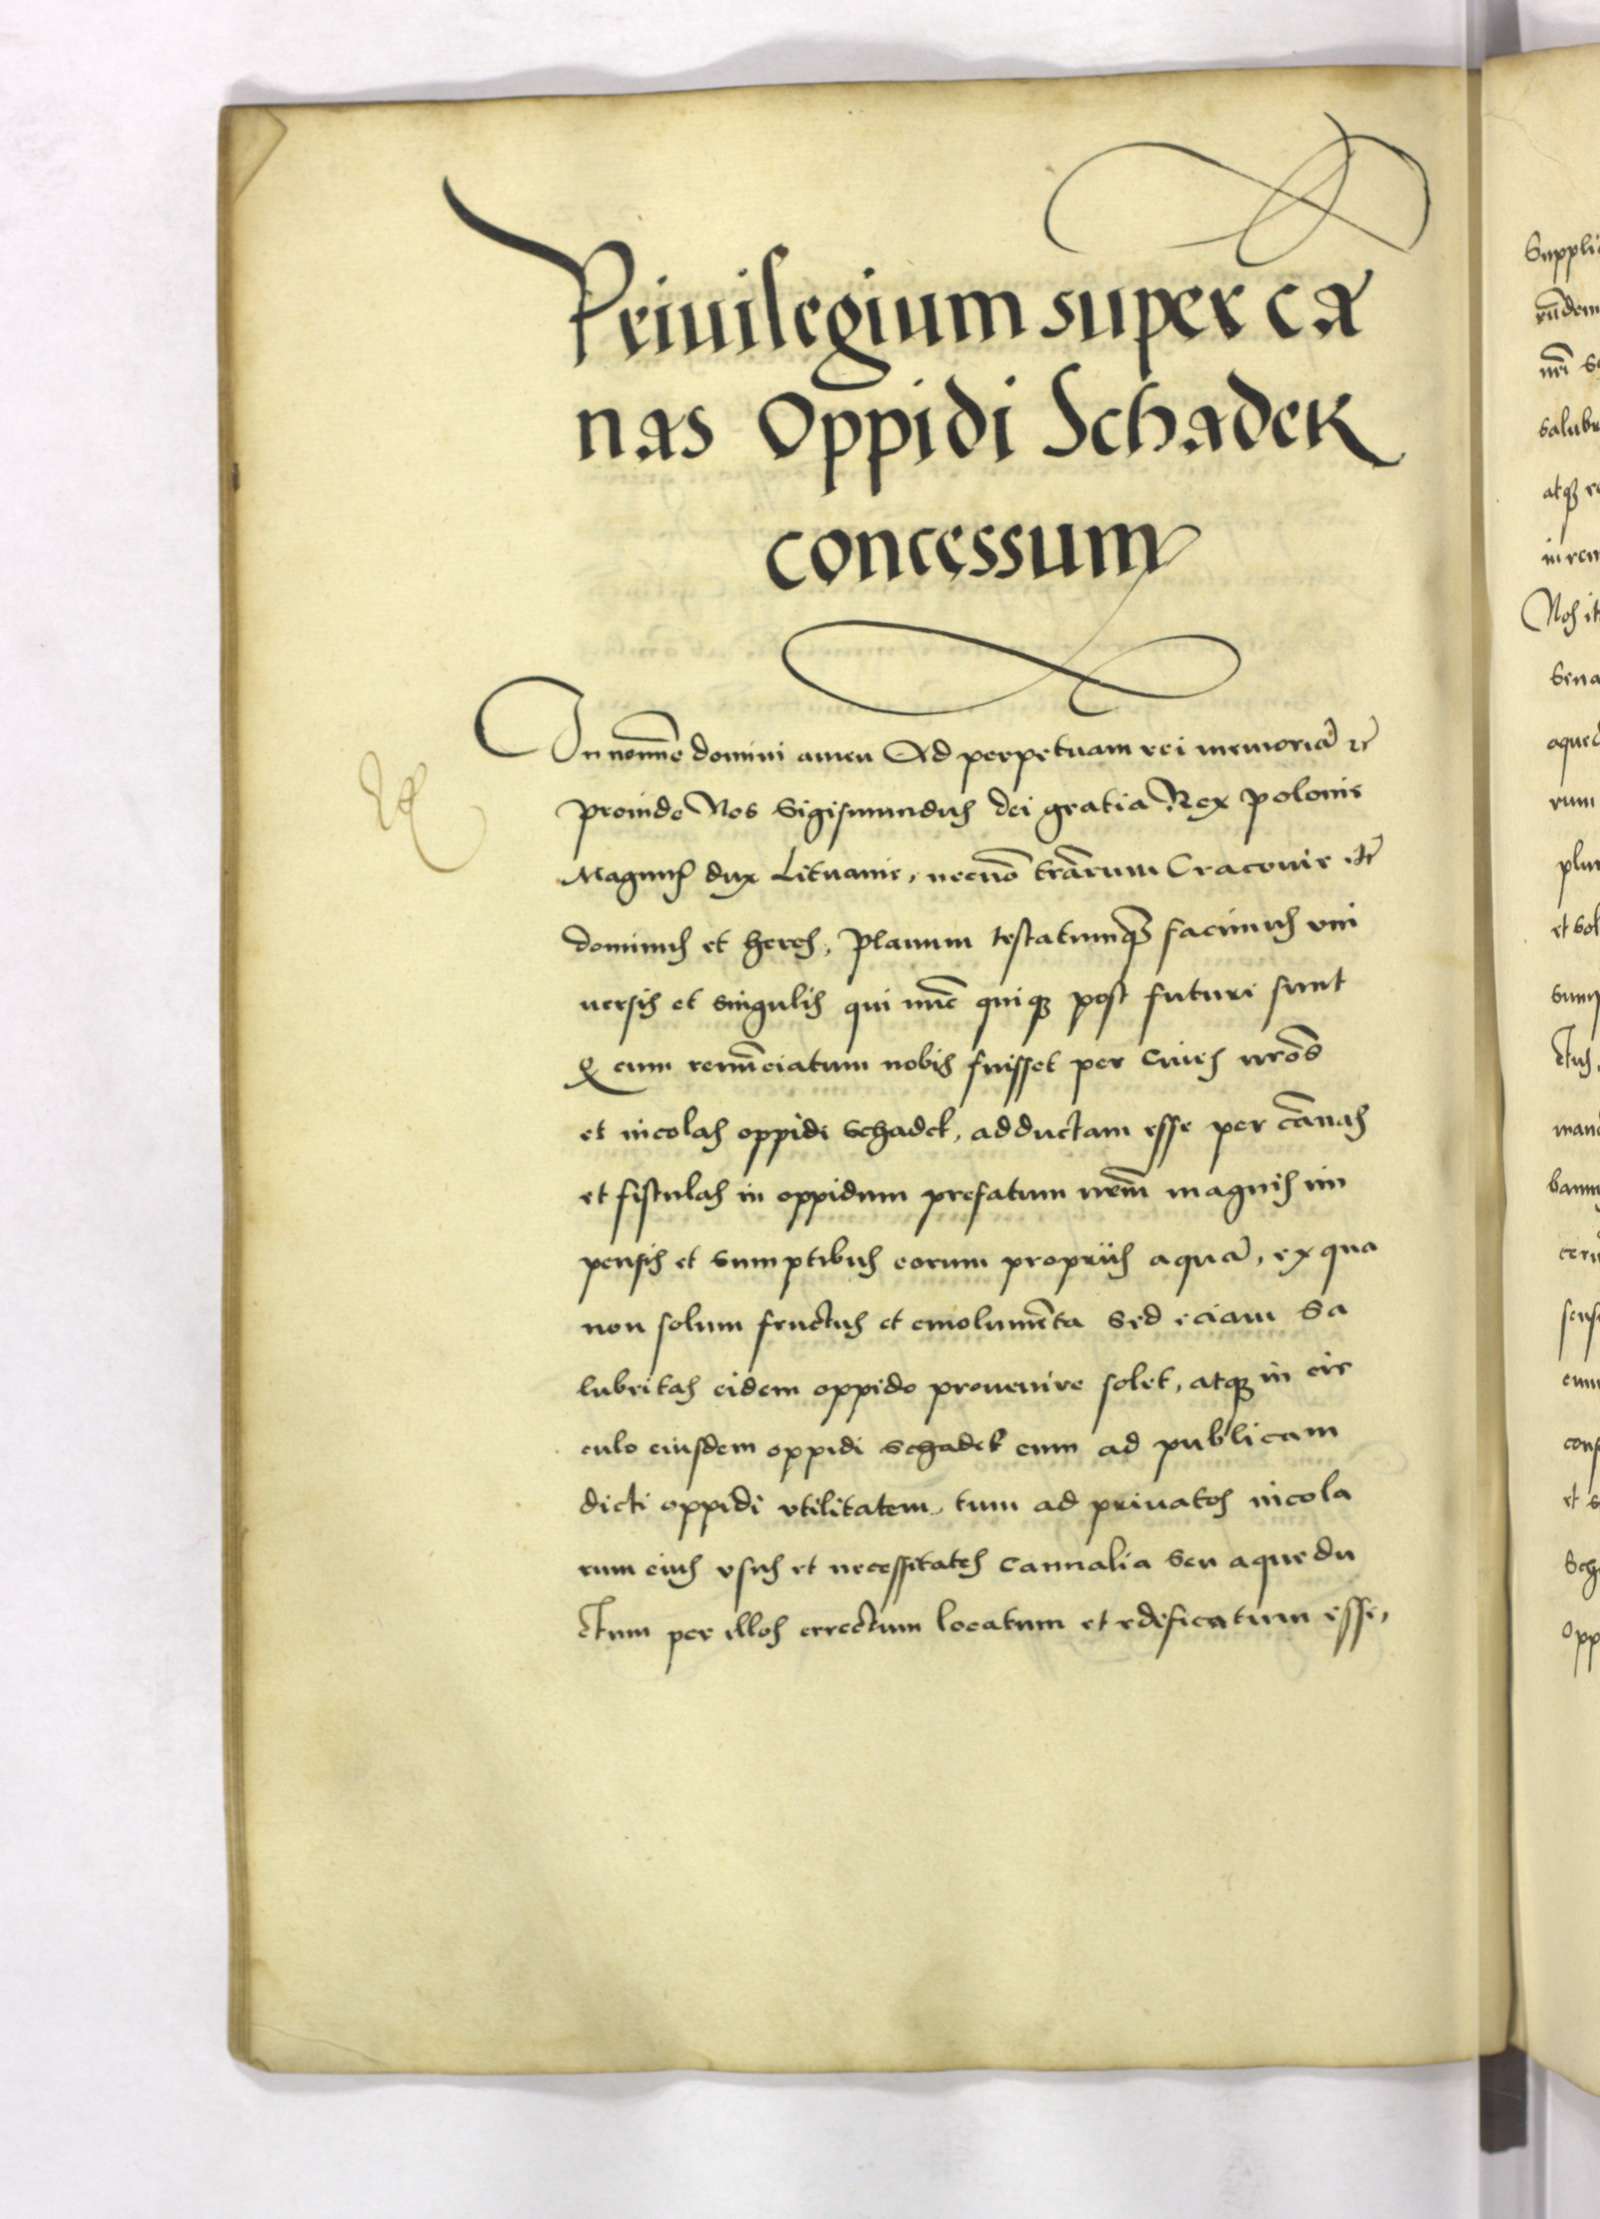 Priuilegium super ca
nas Oppidi Schadek
concessum
In nomine domini amen Ad perpetuam rei memoriā etc
proinde Nos Sigismundus dei gratia Rex polonie
Magnus dux Lituanie, necnō trārum Cracouie etc
dominus et heres, planum testatumq̄ facimus vni
uersis et singulis qui nūc quiq post futuri sunt
Q cum renūciatum nobis fuisset per ciues nrōs
et incolas oppidi Schadek, adductam esse per cānas
et fistulas in oppidum prefatum nrm̄ magnis im
pensis et sumptibus eorum propriis aquā, ex qua
non solum fructus et emolumēta sed eciam sa
lubritas eidem oppido prouenire solet, atq in cir
culo eiusdem oppidi Schadek cum ad publicam
dicti oppidi vtilitatem, tum ad priuatos incola
rum eius vsus et necessitates cannalia seu aquedu
ctum per illos errectum locatum et edificatum esse,